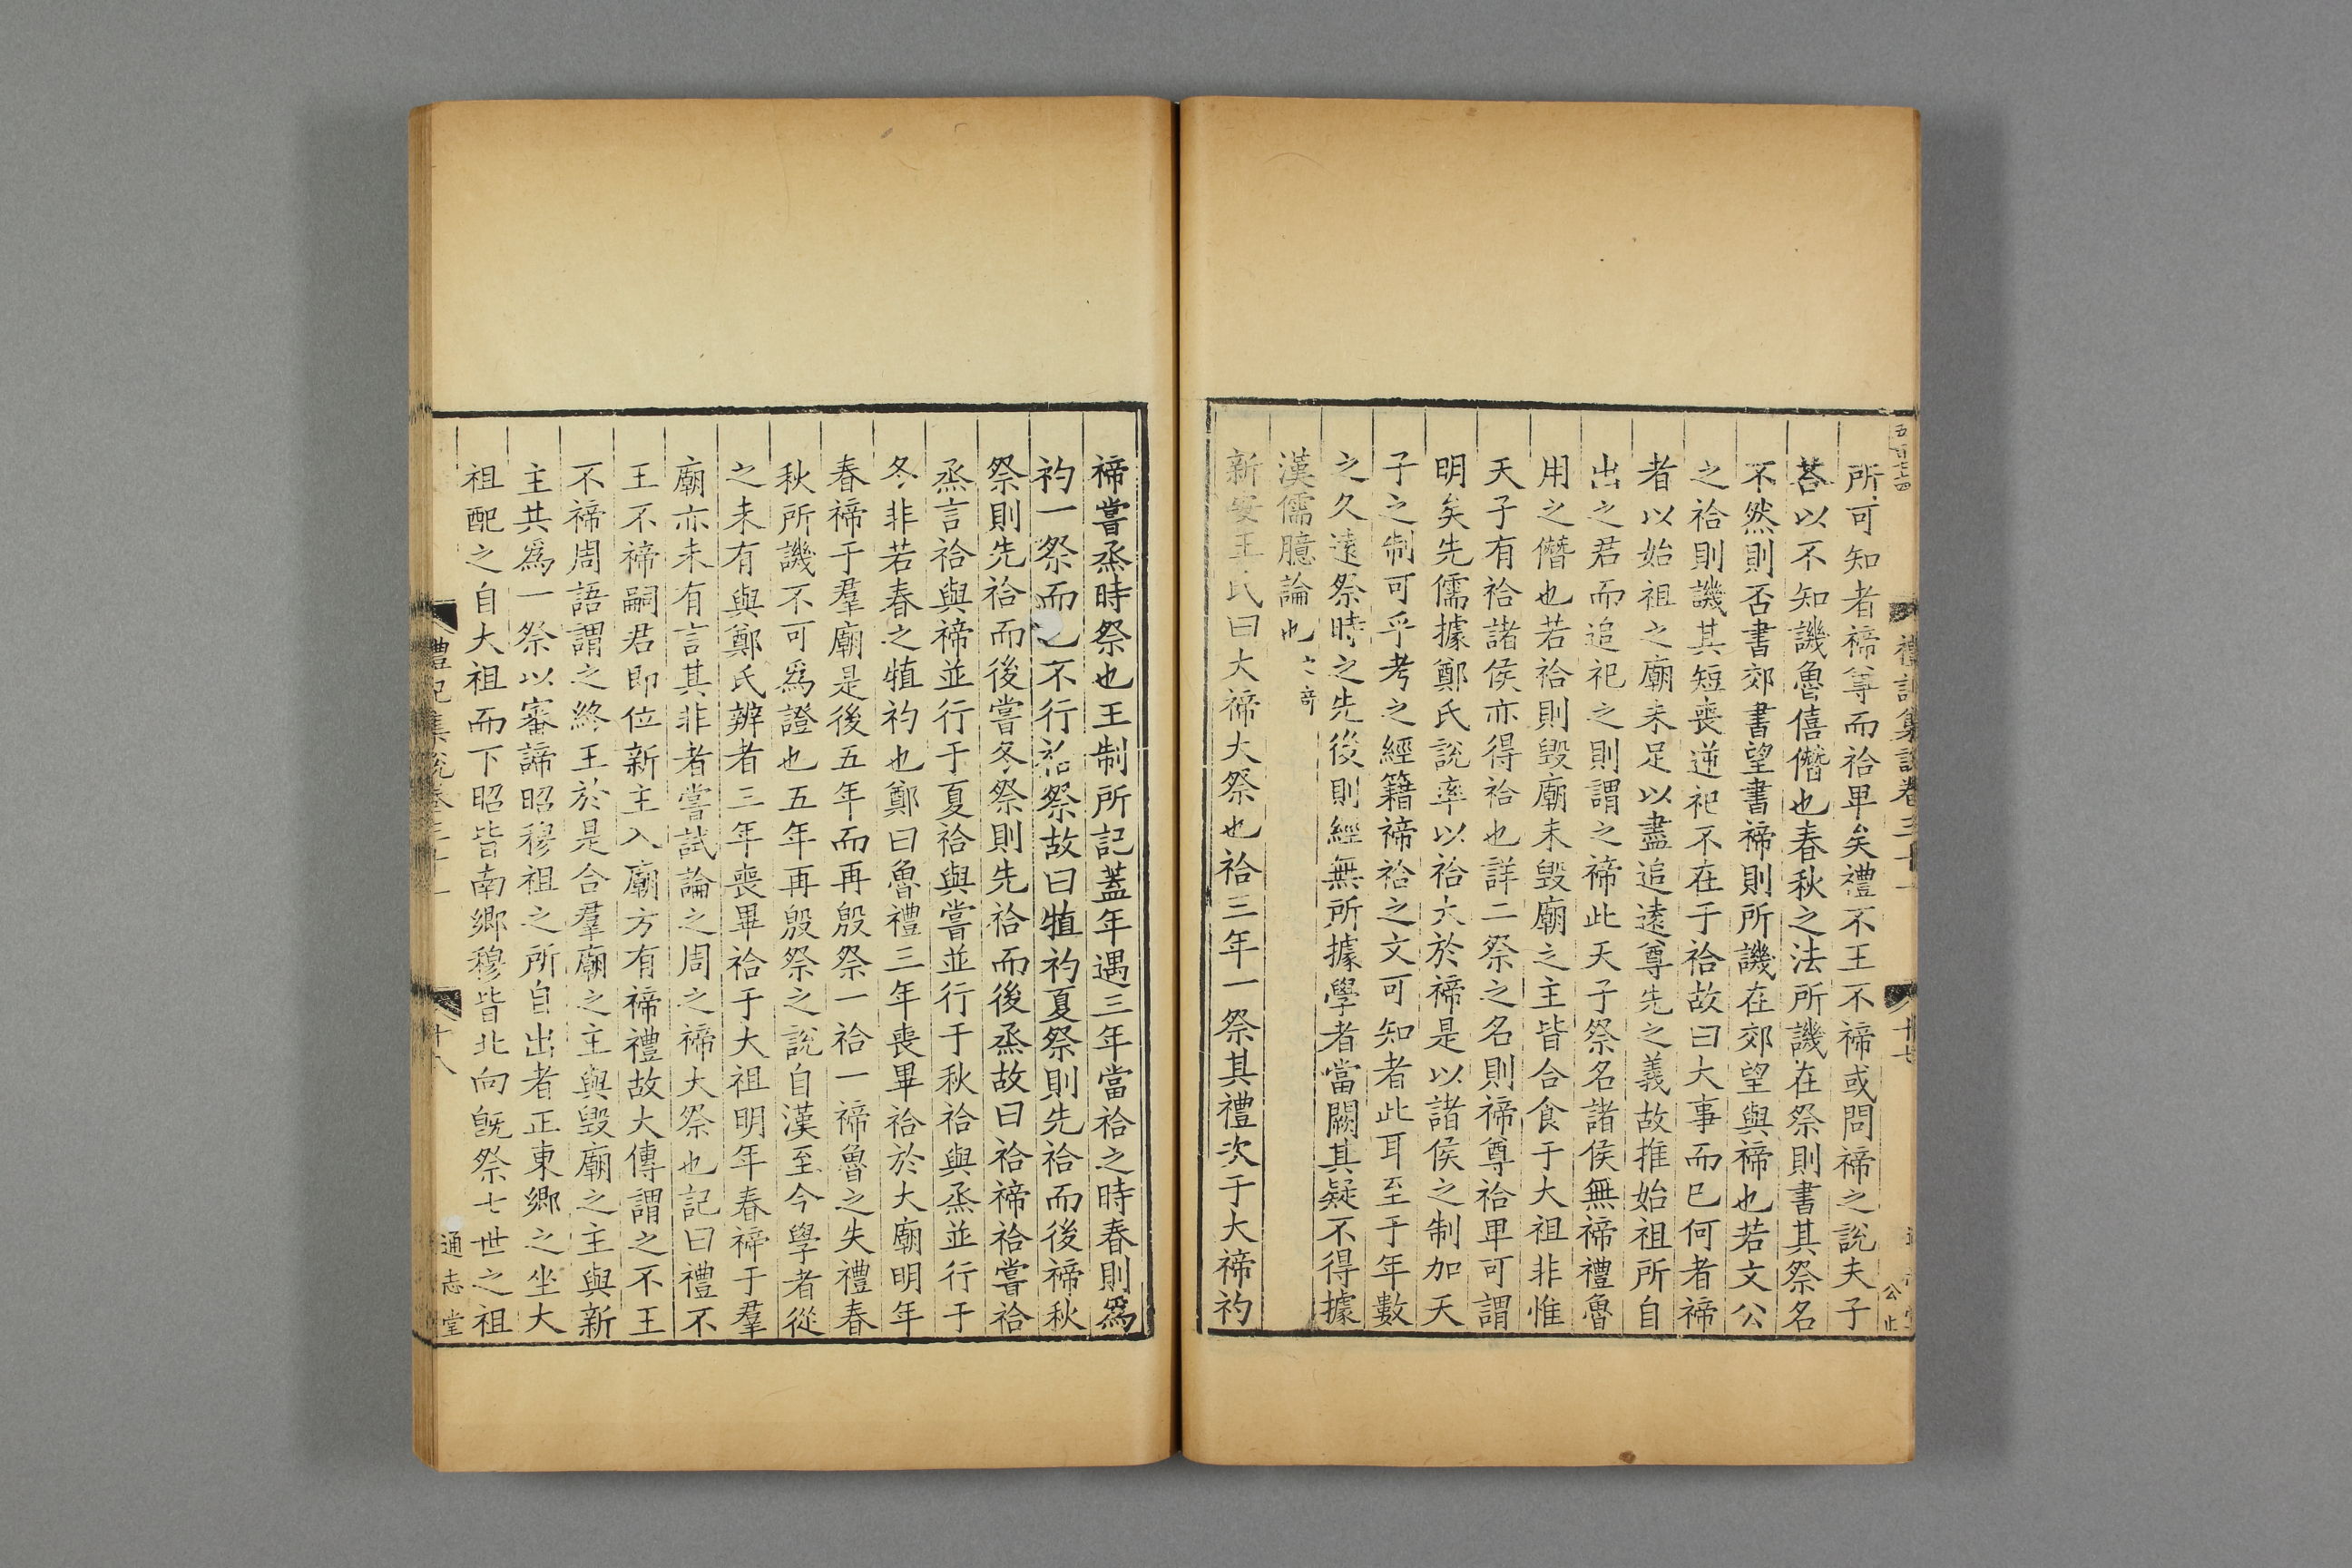 所可知者禘尊而祫卑矣禮不王不禘或問禘之說夫子
荅以不知譏魯僖僭也春秋之法所譏在祭則書其祭名
不然則否書郊書望書禘則所譏在郊望與禘也若文公
之祫則譏其短喪逆祀不在于祫故曰大事而已何者禘
者以始祖之廟未足以盡追遠尊先之義故推始祖所自
出之君而追祀之則謂之禘此天子祭名諸侯無禘禮魯
用之僭也若祫則毀廟未毀廟之主皆合食于大祖非惟
天子有祫諸侯亦得祫也詳二祭之名則禘尊祫卑可謂
明矣先儒據鄭氏說率以祫大於禘是以諸侯之制加天
子之制可乎考之經籍禘祫之文可知者此耳至于年數
之久遠祭時之先後則經無所據學者當闕其疑不得據
漢儒臆論也
新安王氏曰大禘大祭也祫三年一祭其禮次于大禘礿
禘嘗烝時祭也王制所記蓋年遇三年當祫之時春則爲
礿一祭而已不行祫祭故曰犆礿夏祭則先祫而後禘秋
祭則先祫而後嘗冬祭則先祫而後烝故曰祫禘祫嘗祫
烝言祫與禘並行于夏祫與嘗並行于秋祫與烝並行于
冬非若春之犆礿也鄭曰魯禮三年喪畢祫於大廟明年
春禘于羣廟是後五年而再殷祭一祫一禘魯之失禮春
秋所譏不可爲證也五年再殷祭之說自漢至今學者從
之未有與鄭氏辨者三年喪畢祫于大祖明年春禘于羣
廟亦未有言其非者嘗試論之周之禘大祭也記曰禮不
王不禘嗣君即位新主入廟方有禘禮故大傳謂之不王
不禘周語謂之終王於是合羣廟之主與毀廟之主與新
主共爲一祭以審諦昭穆祖之所自出者正東鄉之坐大
祖配之自大祖而下昭皆南鄉穆皆北向旣祭七世之祖
禮記集說卷三十一
十八
通志堂